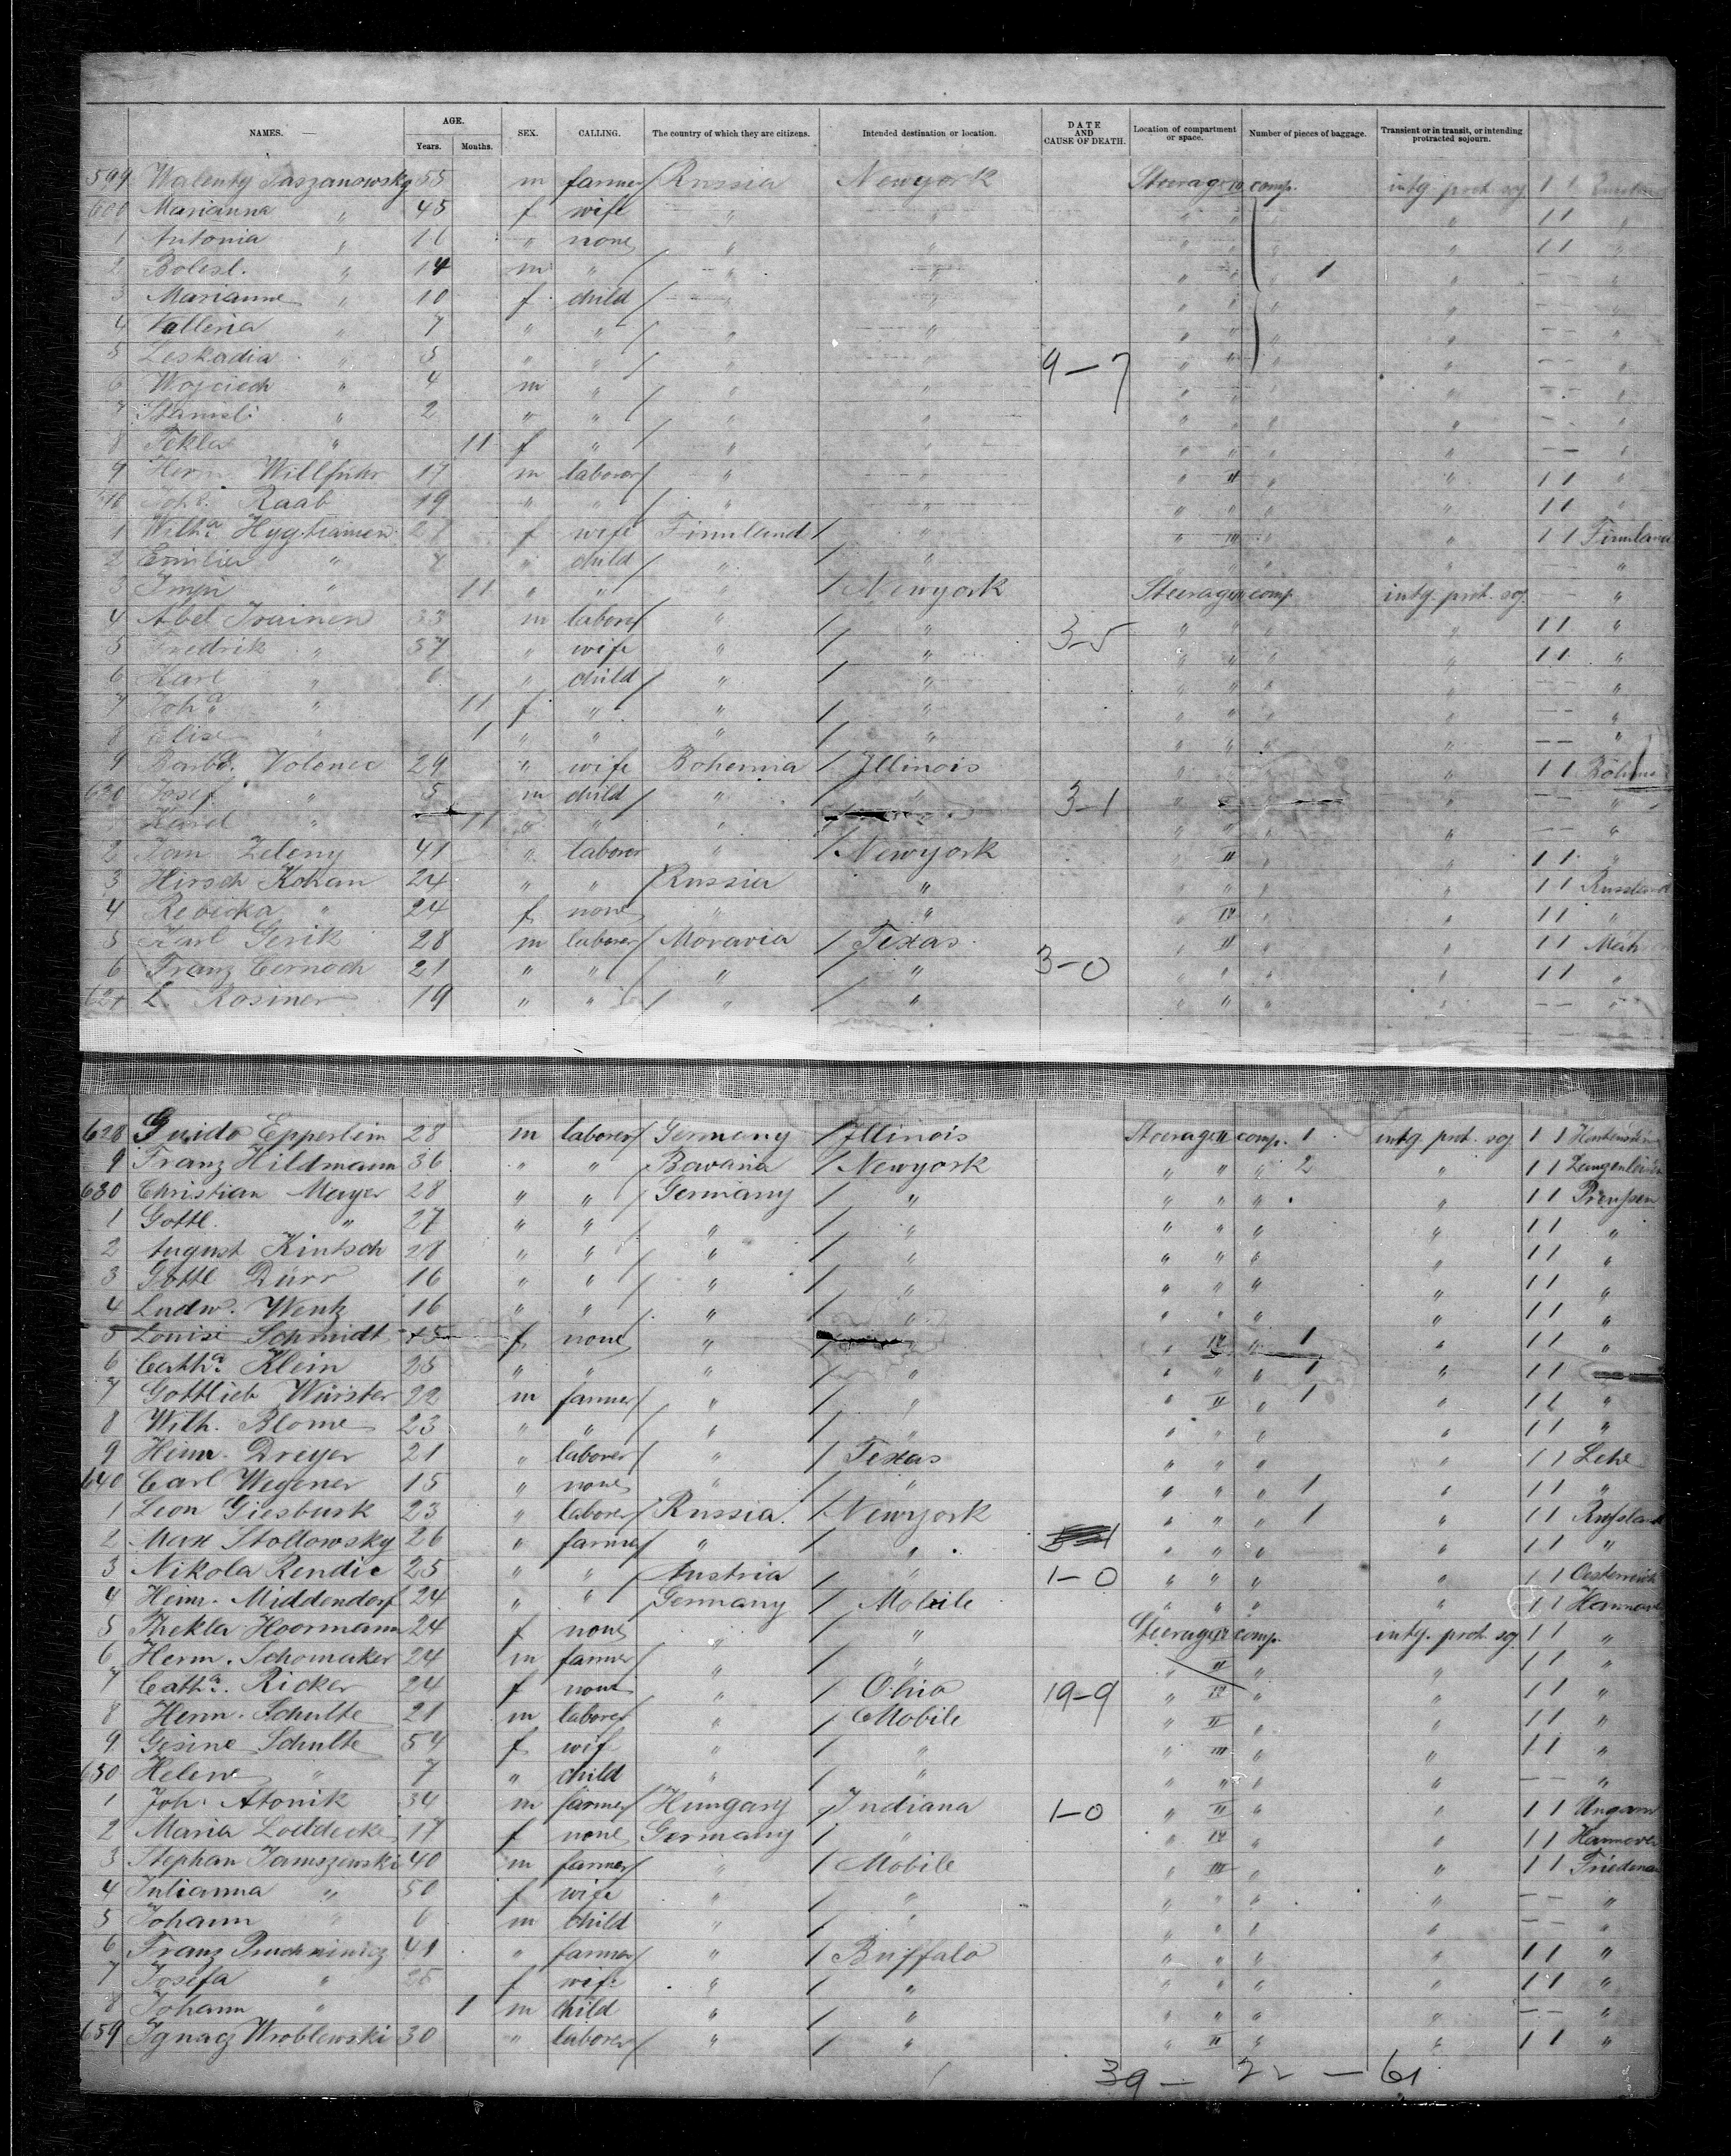 NAMES. AGE. Years. Months. SEX. CALLING. The country of which they are citizens. Intended destination or location. DATE AND CAUSE OF DEATH. Location of compartment or space. Number of pieces of baggage. Transient or in transit, or intending protracted sojourn.
599 Walenty 55 m farmer / Russia Newyork Steerage comp. intg prot soj 1 1
600 Marianna " 45 f wife " " " " " 1 1 "
1 Antonia " 16 " none " " " " " 1 1 "
2 Bolesl. " 14 m " / " " " " 1 " — "
3 Marianne " 10 f child / " " " " " — "
4 Valleria " 7 " " / " " " " " — — "
5 Leskadia " 5 " " / " " 9—7 " " " — — "
6 Wojciech " 4 m " / " " " " " — — "
7 Stanisl. " 2 " " / " " " " " — "
8 Tekla " 11 f " / " " " " " — — "
9 Herm. Willführ 17 m laborer / " " " II " " 1 1 "
610 Joh. Raab 19 " " / " " " " " " 1 1 "
1 Wilh.a 28 f wife Finnland / " " III " " 1 1 Finnland
2 Emilie " 4 " child " " " " " " — — "
3 " 11 " " " / Newyork Steerage comp intg. prot. soj. — — "
4 Abel Irainen 33 m laborer " / " " " " " 1 1 "
5 Fredrik " 37 " wife " / " 3-5 " " " " 1 1 "
6 Karl " 6 " child / " / " " " " " — — "
7 Joh.a " 11 f " / " / " " " " " — — "
8 Elise " 1 " " " / " " " " " — — "
9 Barb. Volenec 29 " wife Bohemia / Illinois " " " 1 1 Böhmen
620 Josef " 5 m child " / " 3-1 " " " — — "
1 Karel " 11 " " " " " " " — — "
2 Jan Zeleny 41 " laborer " / Newyork " II " " 1 1 "
3 Hirsch Kohan 24 " " / Russia " " " " " 1 1 Russland
4 Rebicka " 24 f none " " " IV " " 1 1 "
5 Karl Gerik 28 m laborer / Moravia / Texas " II " " 1 1 Mäh
6 Franz Cernoch 21 " " / " / " 3-0 " " " " 1 1 "
627 L. Rosiner 19 " " / " / " " " " " — — "
628 Guido Epperlein 28 m laborer / Germany / Illinois Steerage II comp. 1 intg prot. soj 1 1
9 Franz Hildmann 36 " " Bavaria / Newyork " " " 2 " 1 1
630 Christian Mayer 28 " " / Germany / " " " " " 1 1 Preussen
1 Gottl. " 27 " " / " / " " " " " 1 1 "
2 August Kintsch 28 " " / " / " " " " " 1 1 "
3 Gottl Dürr 16 " " / " / " " " " " 1 1 "
4 Ludw. Wentz 16 " " / " / " " " " " 1 1 "
5 Louise Schmidt 45 f none " " " IV " 1 " 1 1 "
6 Cath.a Klein 25 " " " / " " " " 1 " 1 1
7 Gottlieb Würster 22 m farmer / " / " " II " 1 " 1 1 "
8 Wilh. Blome 23 " " / " / " " " " " 1 1 "
9 Heinr. Dreyer 21 " laborer / " / Texas " " " " 1 1 Lehe
640 Carl Wegener 15 " none " / " " " " 1 " 1 1 "
1 Leon Giesburk 23 " laborer / Russia. / Newyork " " " 1 " 1 1 Russland
2 Max Stollowsky 26 " farmer / " " " " " " 1 1 "
3 Nikola Rendic 25 " " Austria / " 1-0 " " " " 1 1 Oesterreich
4 Heinr. Middendorf 24 " " Germany / Mobile " " " " 1 1 Hannover
5 Thekla Hoormann 24 f none " " Steerage comp. intg. prot. soj 1 1 "
6 Herm. Schomaker 24 m farmer / " / " " II " " 1 1 "
7 Cath.a Ricker 24 f none " / Ohio 19-9 " IV " " 1 1 "
8 Herm. Schulte 21 m laborer " / Mobile " II " " 1 1 "
9 Gesine Schulte 54 f wif " / " " III " " 1 1 "
650 Helene " 7 " child " / " " " " " — — "
1 Joh. Atonik 34 m farmer / Hungary / Indiana 1-0 " II " " 1 1 Ungarn
2 Maria Loeddecke 17 f none Germany / " " IV " " 1 1 Hannover
3 Stephan 40 m farmer / " / Mobile " III " " 1 1
4 Julianna " 50 f wife " / " " " " " — — "
5 Johann " 6 m child " / " " " " " — — "
6 Franz 41 " farmer / " / Buffalo " " " " 1 1 "
7 Josefa " 25 f wife " / " " " " " 1 1 "
8 Johann " 1 m child " / " " " " " — — "
659 Ignacz Wroblewski 30 " laborer / " / " " II " " 1 1 "
39 — 22 — 61